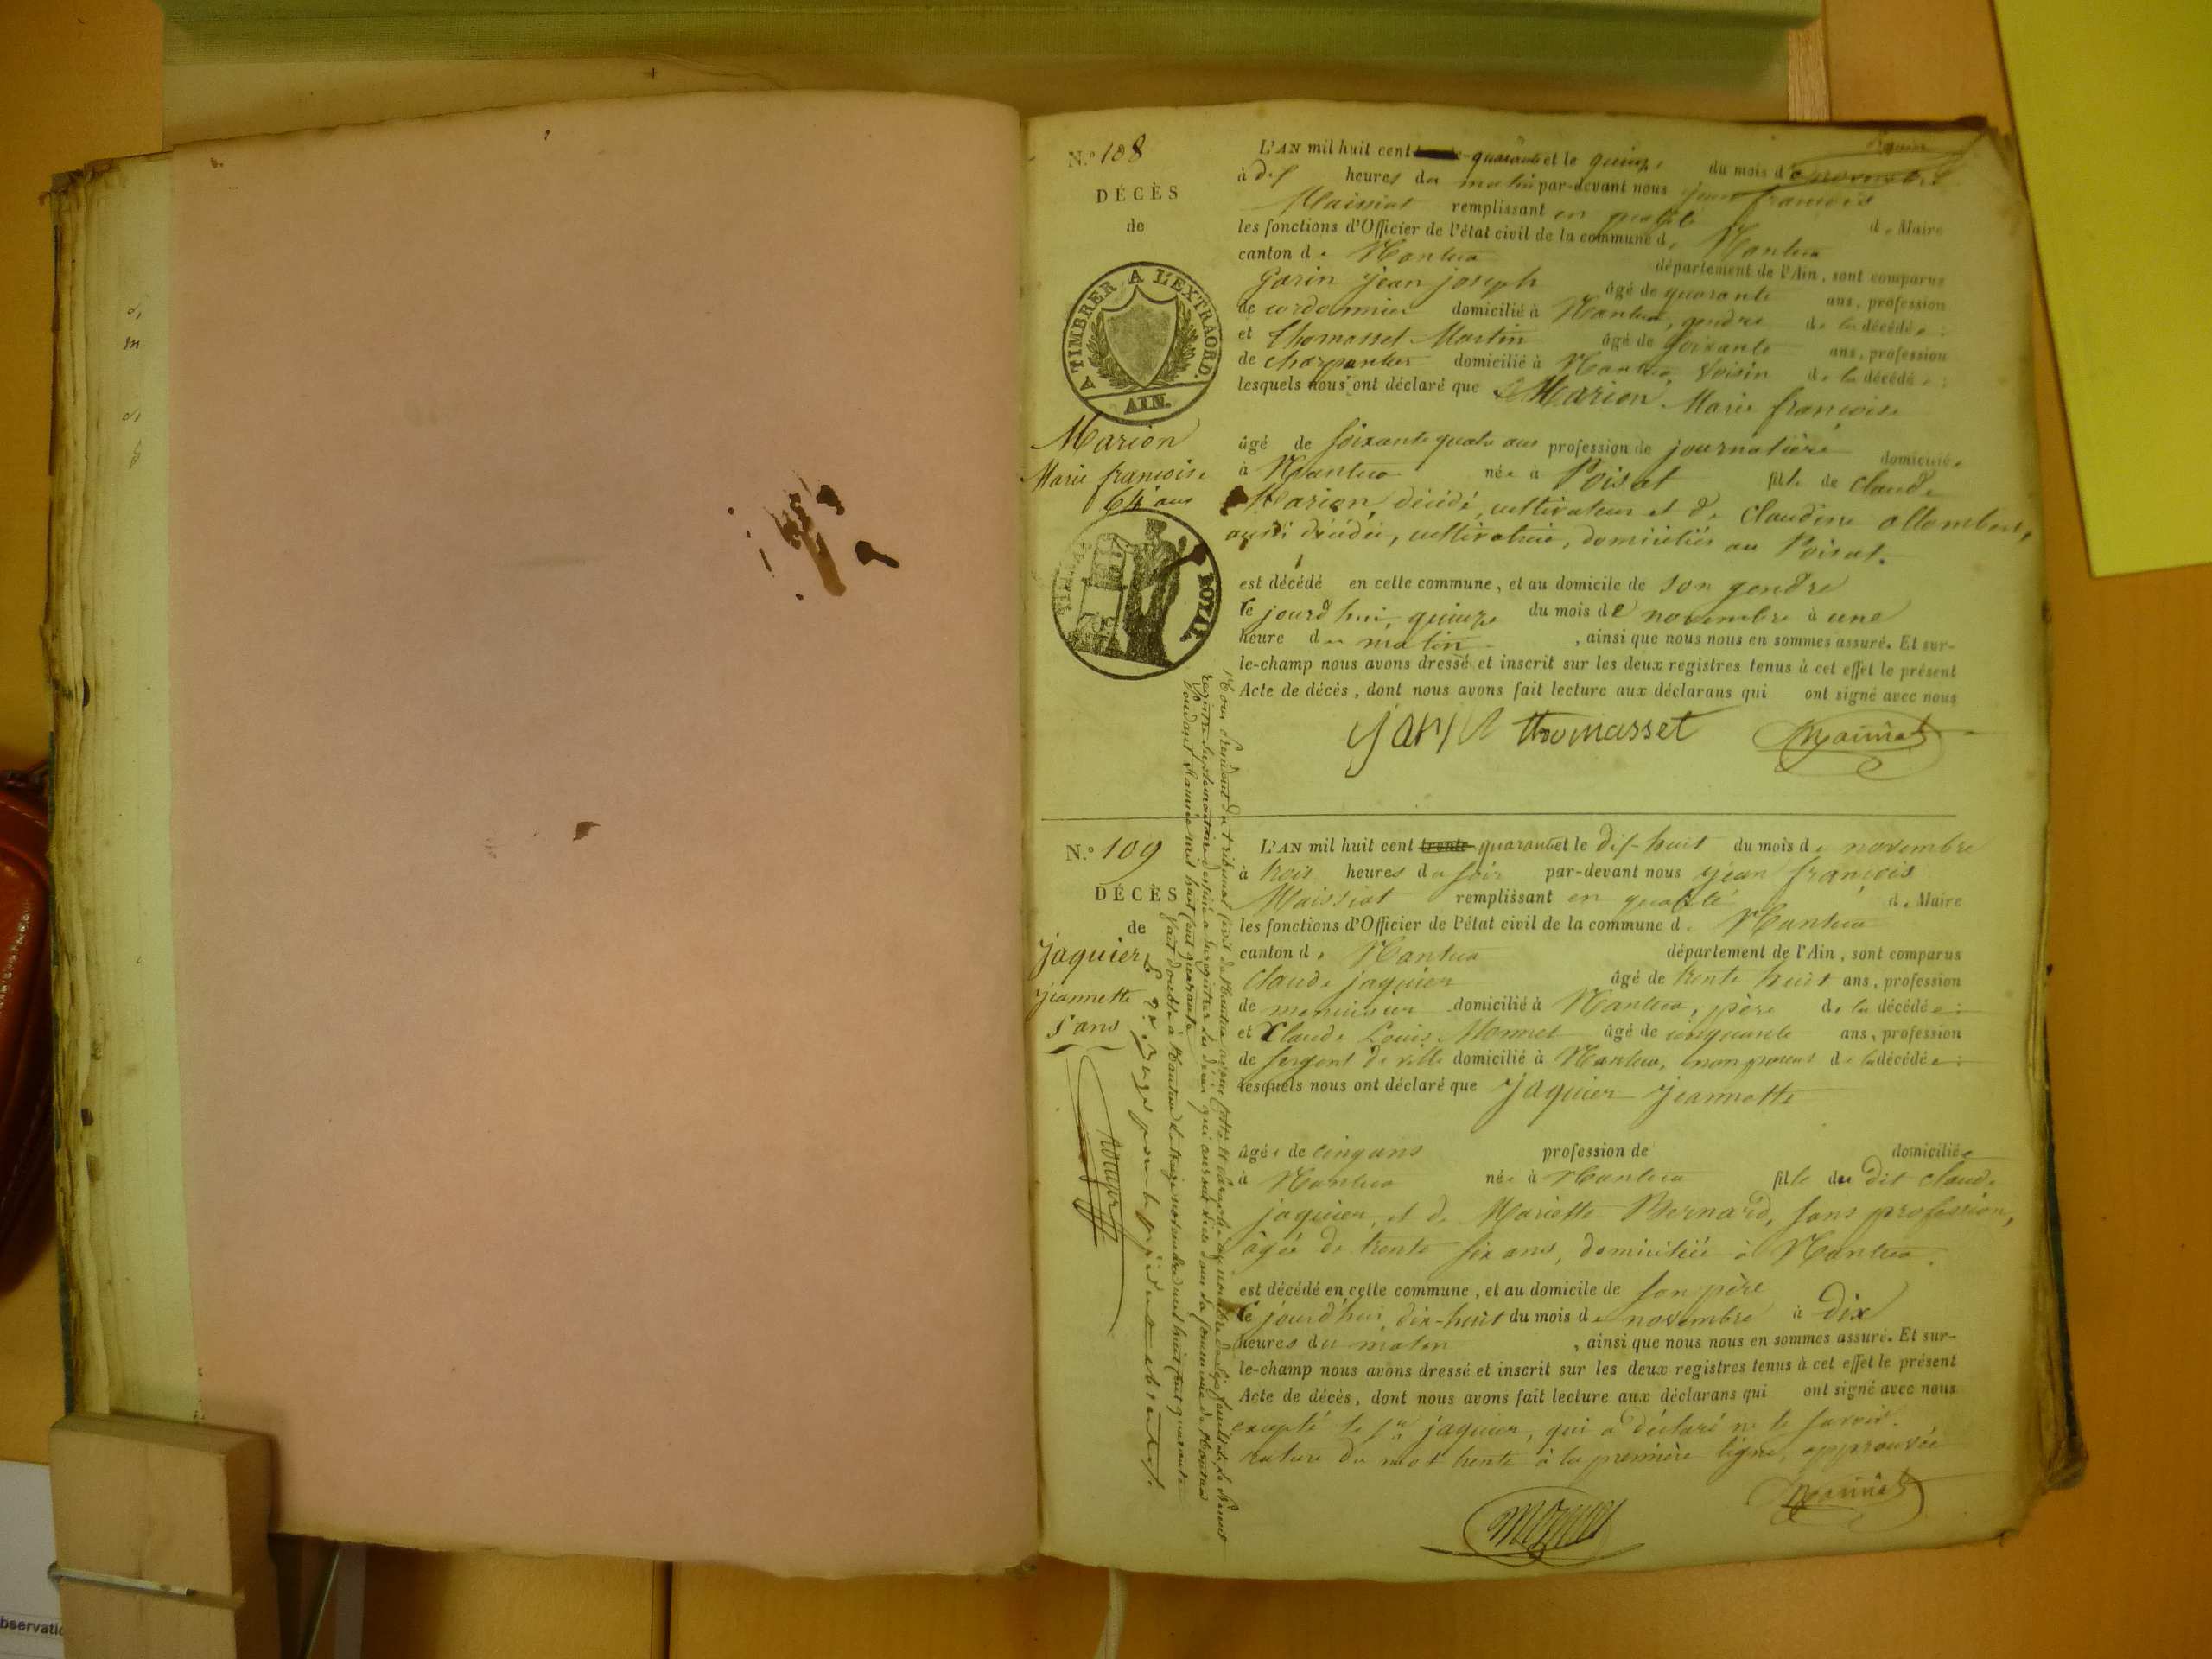 N.º 108
DÉCÈS
de
A TIMBRER A L'EXTRAORD.
AIN.
Marion
Marie françoise
64 ans
TIMBRE ROYAL
L'AN mil huit cent trente quarante et le quinze du mois de novembre
à dix heures du matin par-devant nous jean françois
Maissiat remplissant en qualité de Maire
les fonctions d'Officier de l'état civil de la commune de Nantua
canton de Nantua département de l'Ain, sont comparus
Garin jean joseph âgé de quarante ans, profession
de cordonnier domicilié à Nantua, gendre de la décédée :
et Thomasset Martin âgé de soixante ans, profession
de charpentier domicilié à Nantua, voisin de la décédée :
lesquels nous ont déclaré que Marion Marie françoise
âgé de soixante quatre ans profession de journalière domiciliée
à Nantua née à Poisat fille de Claude
Marion, décédé, cultivateur et de Claudine Allombert,
aussi décédée, cultivatrice, domiciliés au Poisat.
est décédé en cette commune, et au domicile de son gendre
le jourd'hui, quinze du mois de novembre à une
heure du matin, ainsi que nous nous en sommes assuré. Et sur-
le-champ nous avons dressé et inscrit sur les deux registres tenus à cet effet le présent
Acte de décès, dont nous avons fait lecture aux déclarans qui ont signé avec nous
thomasset Maissiat
N.º 109
DÉCÈS
de
jaquier
jeannette
5 ans
L'AN mil huit cent trente quarante et le dix-huit du mois de novembre
à trois heures du soir par-devant nous jean françois
Maissiat remplissant en qualité de Maire
les fonctions d'Officier de l'état civil de la commune de Nantua
canton de Nantua département de l'Ain, sont comparus
Claude jaquier âgé de trente huit ans, profession
de menuisier domicilié à Nantua, père de la décédée :
et Claude Louis Monnet âgé de cinquante ans, profession
de sergent de ville domicilié à Nantua, non parent de la décédée :
lesquels nous ont déclaré que jaquier jeannette
âgée de cinq ans profession de domiciliée
à Nantua née à Nantua fille du dit Claude
jaquier, et de Mariette Bernard, sans profession,
âgée de trente six ans, domiciliée à Nantua.
est décédé en cette commune, et au domicile de son père
le jourd'hui, dix-huit du mois de novembre à dix
heures du matin, ainsi que nous nous en sommes assuré. Et sur-
le-champ nous avons dressé et inscrit sur les deux registres tenus à cet effet le présent
Acte de décès, dont nous avons fait lecture aux déclarans qui ont signé avec nous
excepté le s.r jaquier, qui a déclaré ne le savoir.
rature du mot trente à la première ligne, approuvée
Maissiat
Nous Président du tribunal Civil de Nantua avons cotté et paraphé au nombre de dix feuillets, le présent
registre supplémentaire destiné à enregistrer les décès qui auront lieu dans la commune de Nantua
pendant l'année mil huit cent quarante
fait et donné à Nantua le treize novembre mil huit cent quarante
Le Juge pour le président absent